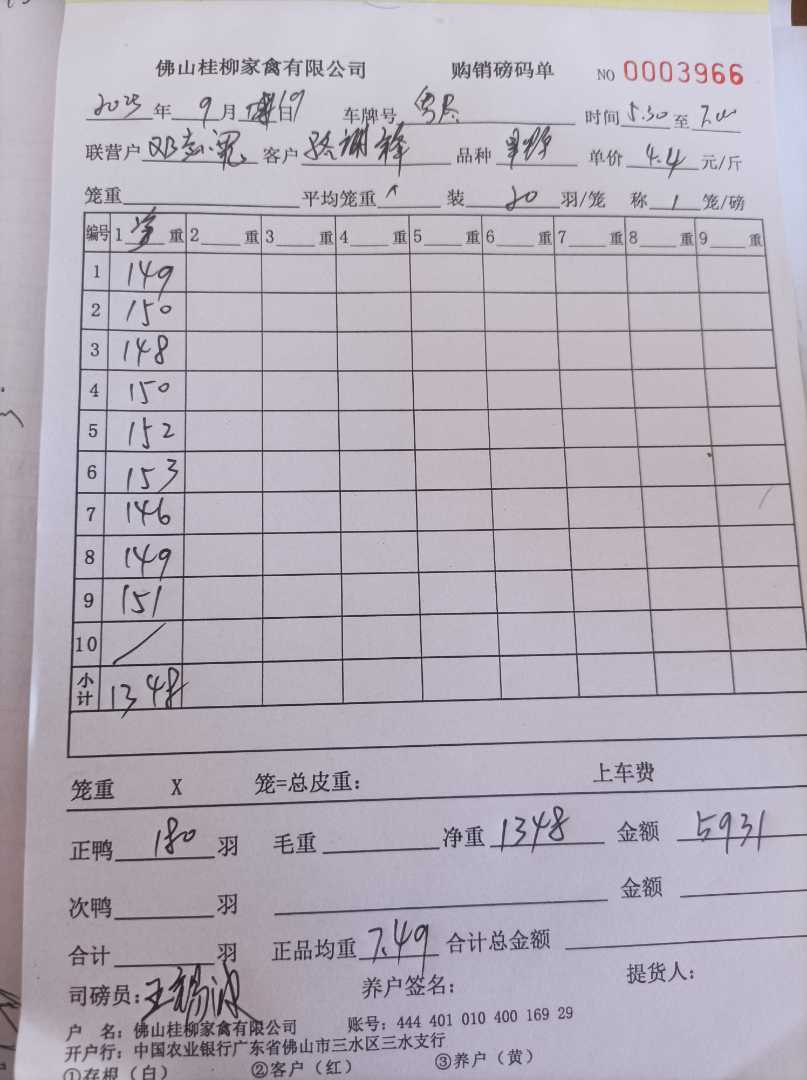 佛山桂柳家禽有限公司 购销磅码单 NO 0003966
2025年 9月 19日 车牌号 时间 5.30 至 7.00
联营户 客户 品种 单价 4.4 元/斤
笼重 平均笼重 装 20 羽/笼 称 1 笼/磅
编号 1 净 重 2 重 3 重 4 重 5 重 6 重 7 重 8 重 9 重
1 149
2 150
3 148
4 150
5 152
6 153
7 146
8 149
9 151
10 /
小计 1348
笼重 X 笼=总皮重: 上车费
正鸭 180 羽 毛重 净重 1348 金额 5931
次鸭 羽 金额
合计 羽 正品均重 7.49 合计总金额
司磅员: 王锡波 养户签名: 提货人:
户 名: 佛山桂柳家禽有限公司 账号: 444 401 010 400 169 29
开户行: 中国农业银行广东省佛山市三水区三水支行
①存根（白） ②客户（红） ③养户（黄）